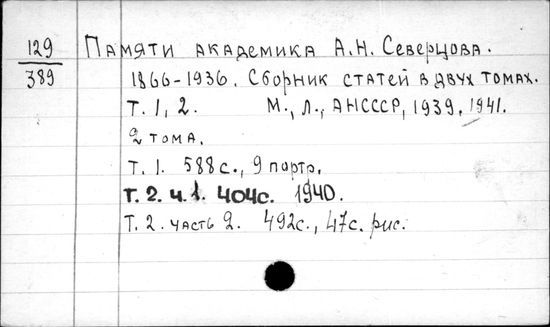 129
389
Памяти академика А.Н. Северцова.
1866-1936. Сборник статей в двух томах.
Т. 1, 2. М., Л., АНСССР, 1939, 1941.
2 тома.
Т. 1. 588 с., 9 портр.
Т. 2. ч. 1. 404с. 1940.
Т. 2. часть 2. 492с., 47с. рис.